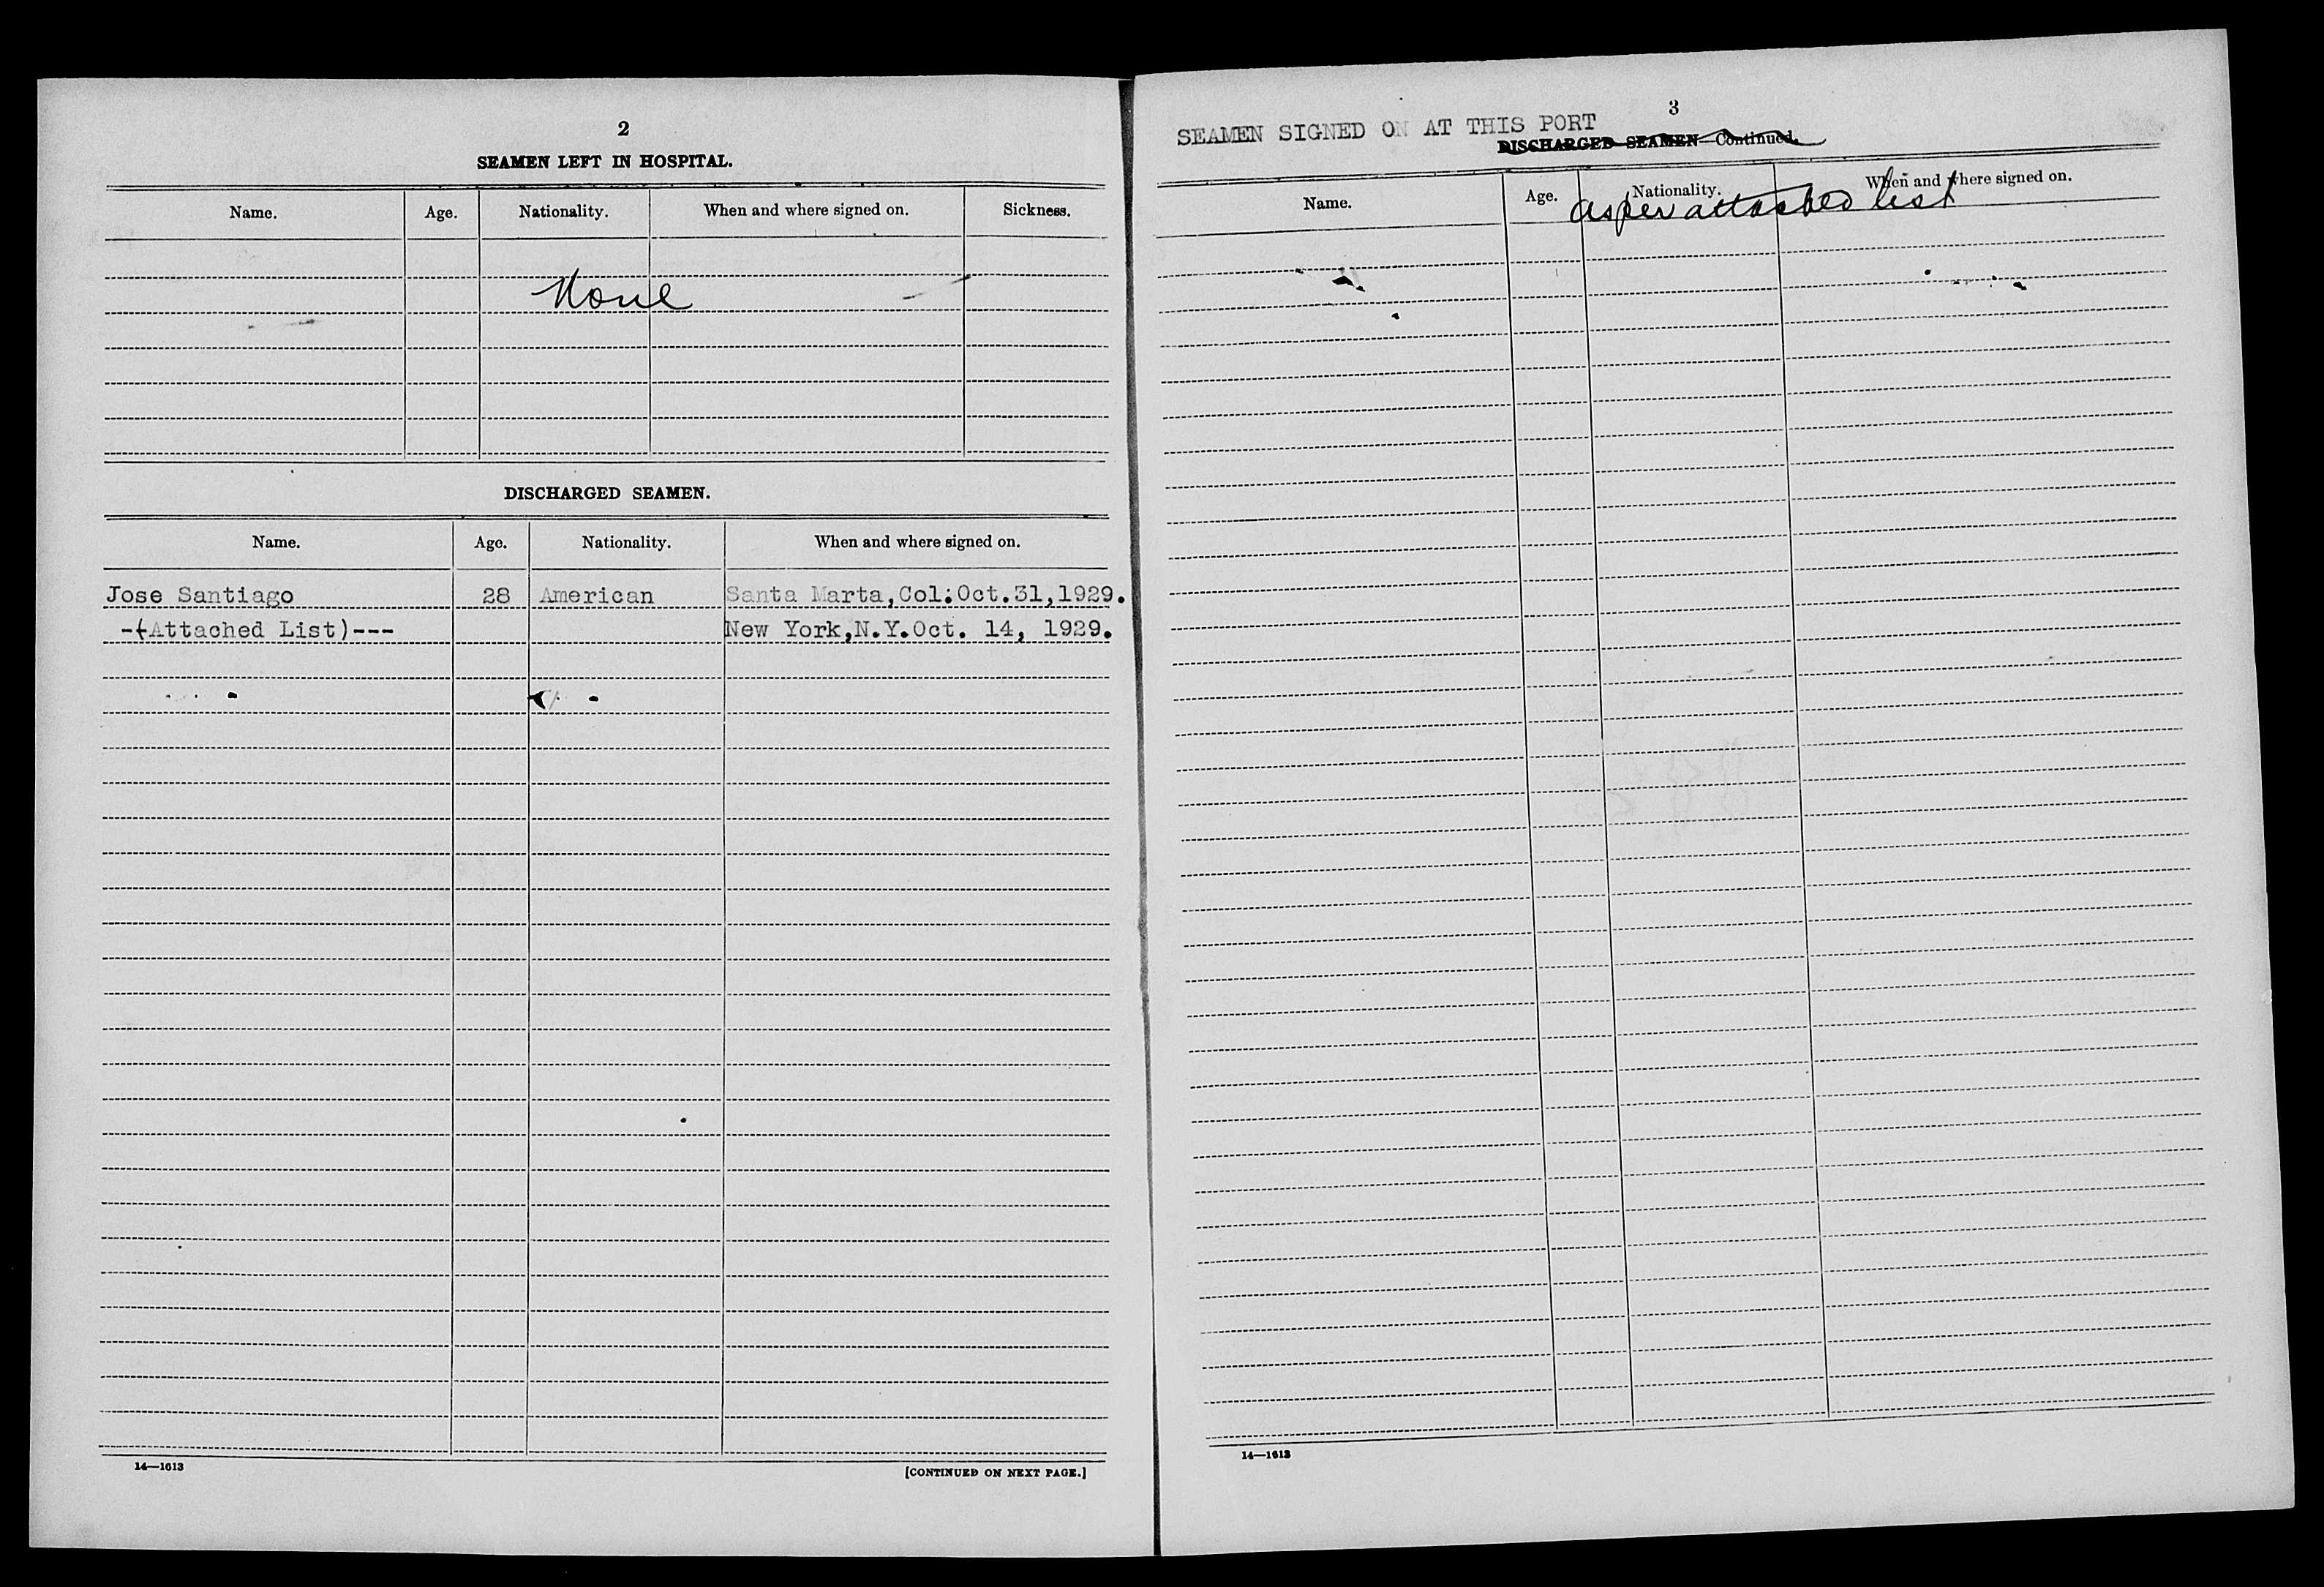 2
SEAMEN LEFT IN HOSPITAL.
Name. Age. Nationality. When and where signed on. Sickness.
None
DISCHARGED SEAMEN.
Name. Age. Nationality. When and where signed on.
Jose Santiago 28 American Santa Marta,Col:Oct.31,1929.
-(Attached List)--- New York,N.Y.Oct. 14, 1929.
14—1613 [CONTINUED ON NEXT PAGE.]
3
SEAMEN SIGNED ON AT THIS PORT
DISCHARGED SEAMEN—Continued.
Name. Age. Nationality. When and where signed on.
as per attached list
14—1613